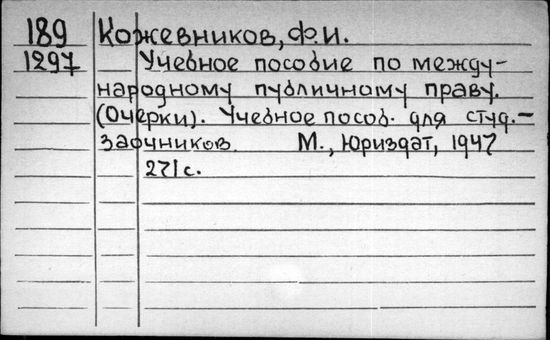 189 Кожевников, Ф.И.
1297 Учебное пособие по между-
народному публичному праву.
(Очерки). Учебное пособ. для студ.-
заочников. М., Юриздат, 1947
271с.